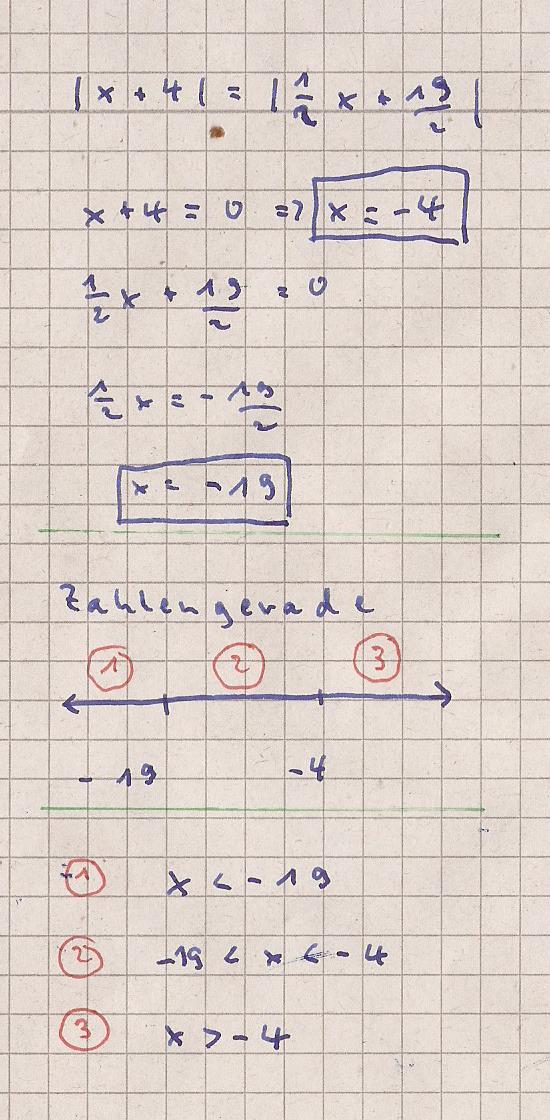 |x + 4| = |1/2 x + 19/2|
x + 4 = 0 => x = -4
1/2 x + 19/2 = 0
1/2 x = - 19/2
x = -19
Zahlengerade
1 2 3
-19 -4
1 x < -19
2 -19 < x < -4
3 x > -4